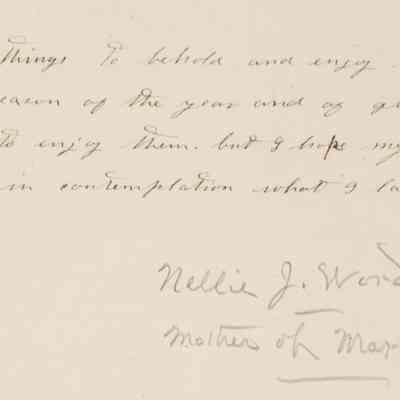 things to behold and enjoy.
eason of the year and of
to enjoy them. but I hope my
in contemplation what I la
Nellie J. Word
Mother of Mar